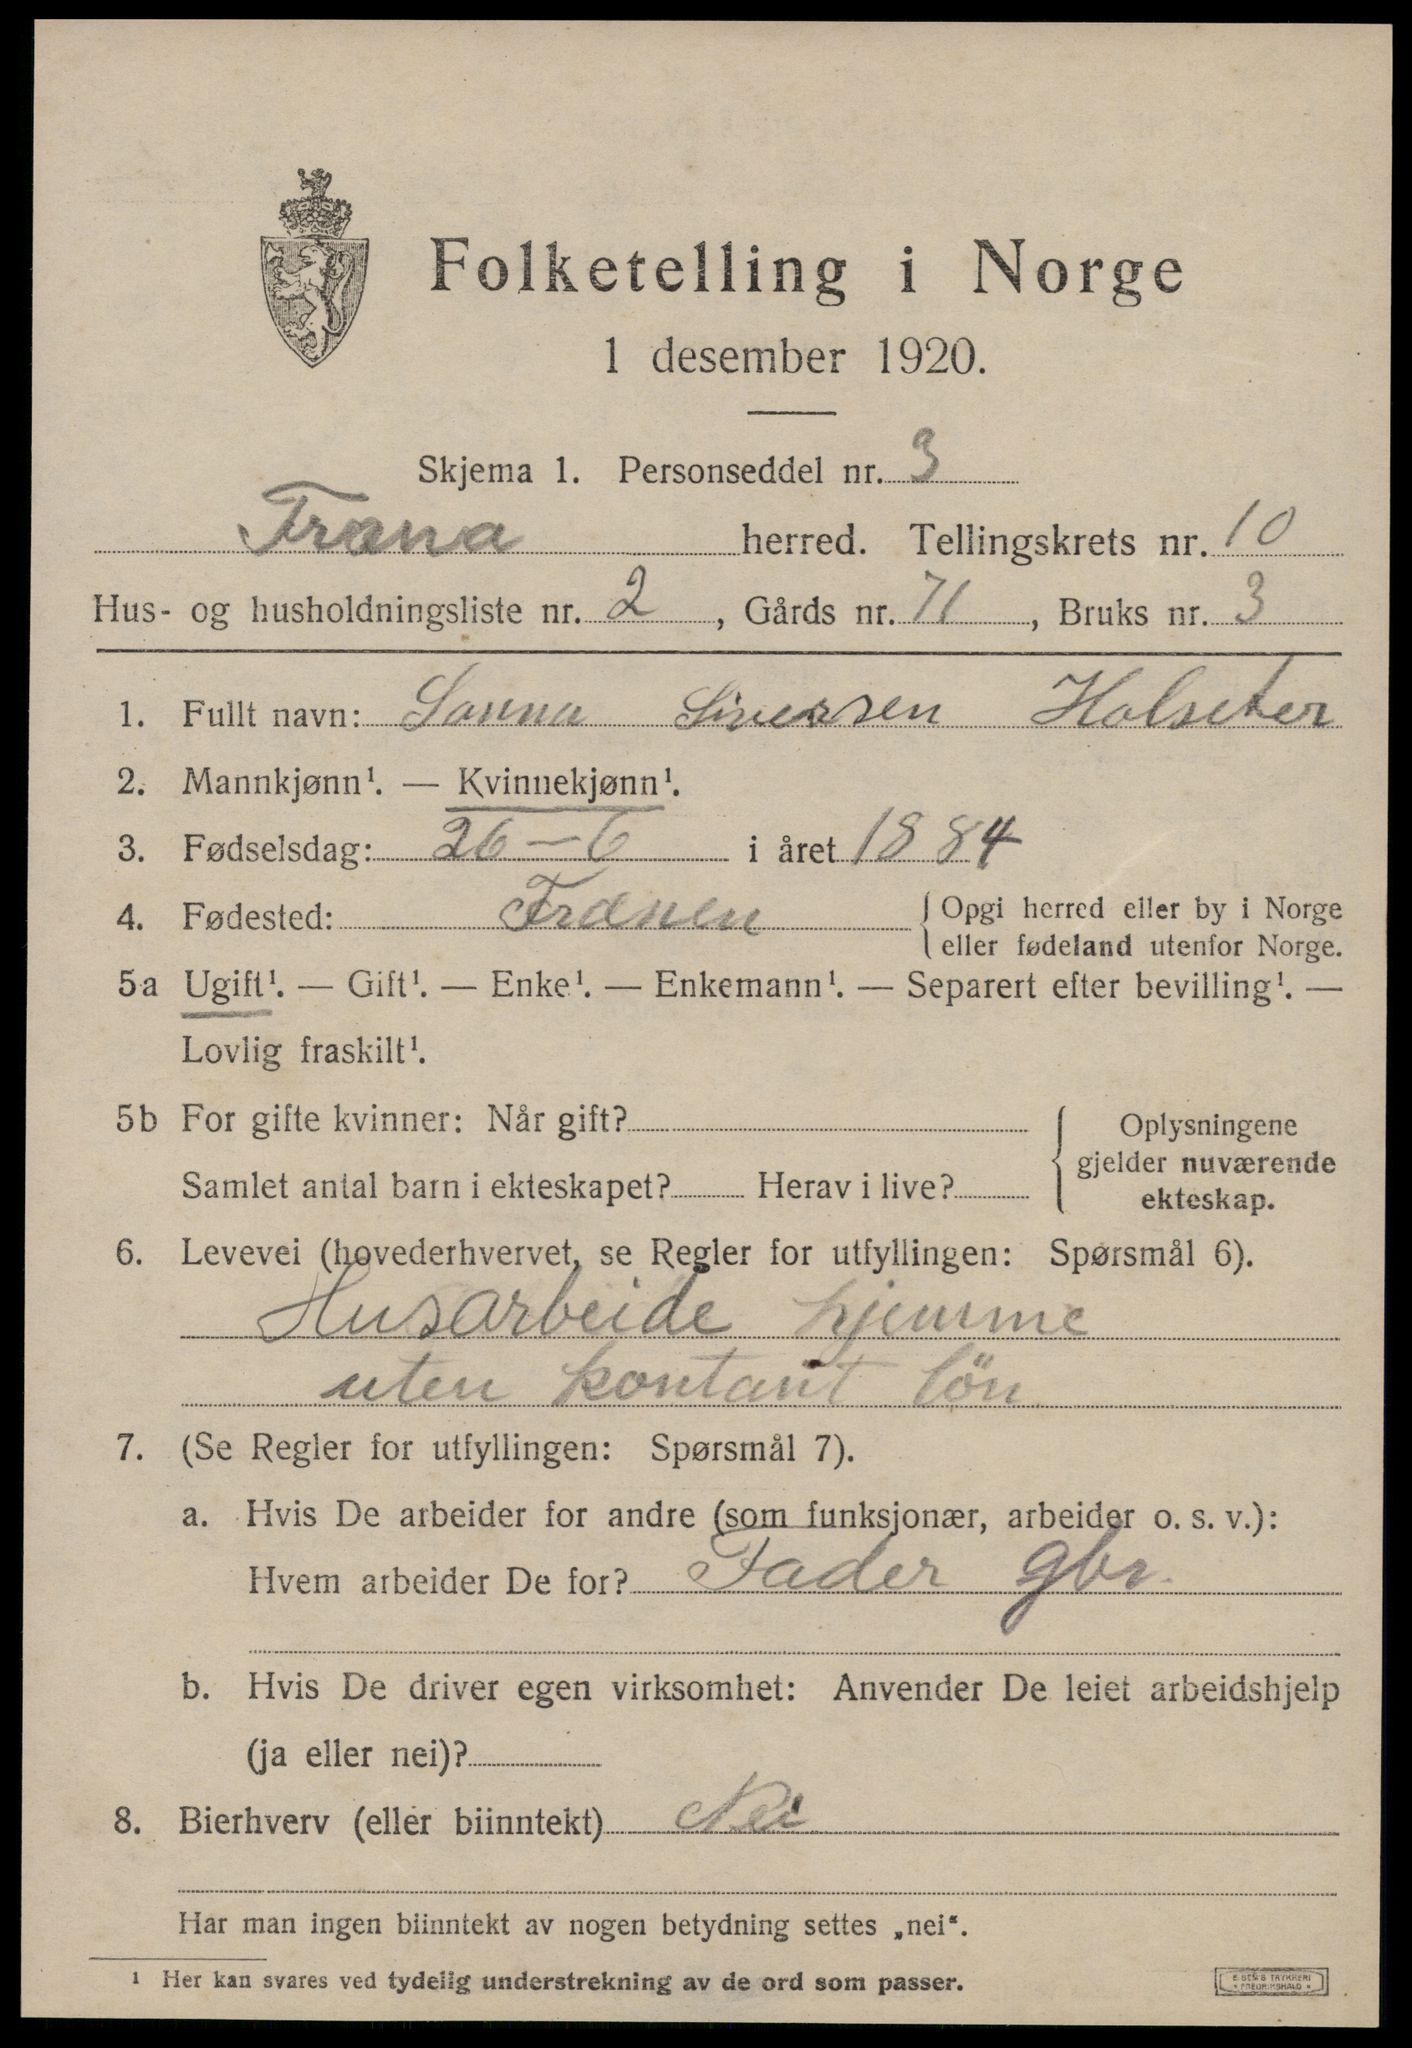 Folketelling i Norge
1 desember 1920.
Skjema 1. Personseddel nr. 3
Fræna herred. Tellingskrets nr. 10
Hus- og husholdningsliste nr. 2, Gårds nr. 71, Bruks nr. 3
1. Fullt navn: Sanna Siversen Holseter
2. Mannkjønn¹. — Kvinnekjønn¹.
3. Fødselsdag: 26 – 6 i året 1884
4. Fødested: Frænen { Opgi herred eller by i Norge
eller fødeland utenfor Norge.
5a Ugift¹. — Gift¹. — Enke¹. — Enkemann¹. — Separert efter bevilling¹. —
Lovlig fraskilt¹.
5b For gifte kvinner: Når gift?
Samlet antal barn i ekteskapet? Herav i live?
Oplysningene
gjelder nuværende
ekteskap.
6. Levevei (hovederhvervet, se Regler for utfyllingen: Spørsmål 6).
Husarbeide hjemme
uten kontant lön
7. (Se Regler for utfyllingen: Spørsmål 7).
a. Hvis De arbeider for andre (som funksjonær, arbeider o. s. v.):
Hvem arbeider De for? Fader gbr.
b. Hvis De driver egen virksomhet: Anvender De leiet arbeidshjelp
(ja eller nei)?
8. Bierhverv (eller biinntekt) Nei
Har man ingen biinntekt av nogen betydning settes „nei“.
¹ Her kan svares ved tydelig understrekning av de ord som passer.
E. SEM'S TRYKKERI
• FREDRIKSHALD •